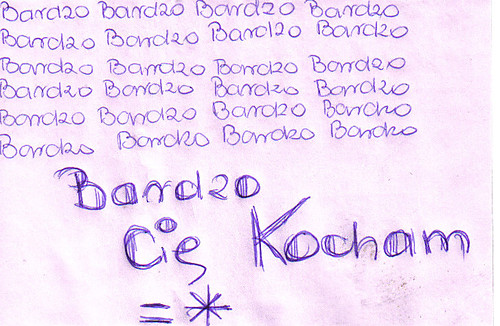 Bardzo Bardzo Bardzo Bardzo
Bardzo Bardzo Bardzo Bardzo
Bardzo Bardzo Bardzo Bardzo
Bardzo Bardzo Bardzo Bardzo
Bardzo Bardzo Bardzo Bardzo
Bardzo Bardzo Bardzo Bardzo
Bardzo
Cię Kocham
=*